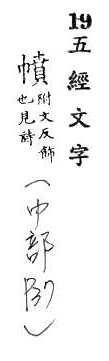 19五經文字
幩附文反飾
也見詩
(巾部 P37)